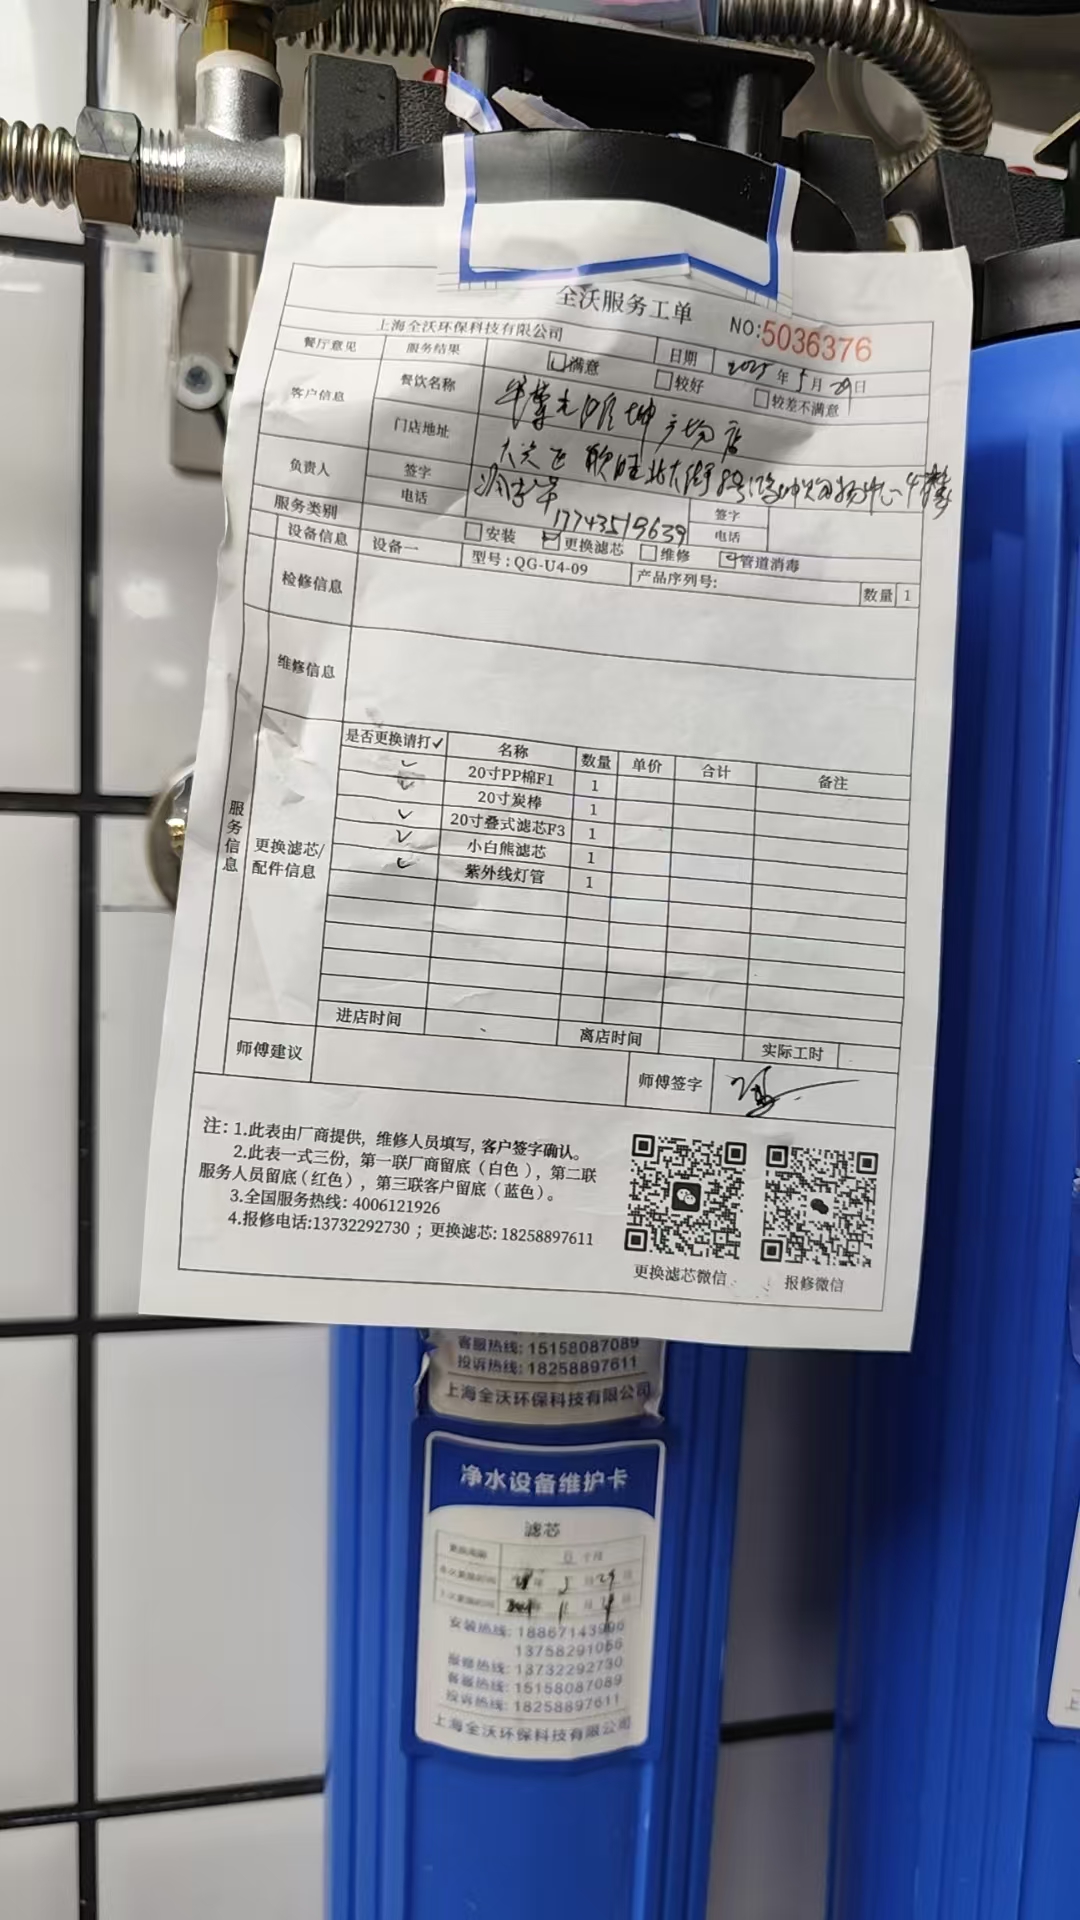 全沃服务工单
NO:5036376
上海全沃环保科技有限公司
日期 2025年5月29日
餐厅意见 服务结果 满意 较好 较差不满意
客户信息 餐饮名称 广场店
门店地址
负责人 签字 签字
电话 17743519639 电话
服务类别 安装 更换滤芯 维修 管道消毒
设备信息 设备一 型号:QG-U4-09 产品序列号: 数量 1
检修信息
维修信息
服务信息
更换滤芯/
配件信息
是否更换请打✓ 名称 数量 单价 合计 备注
✓ 20寸PP棉F1 1
✓ 20寸炭棒 1
✓ 20寸叠式滤芯F3 1
✓ 小白熊滤芯 1
✓ 紫外线灯管 1
进店时间 离店时间 实际工时
师傅建议 师傅签字
注: 1.此表由厂商提供, 维修人员填写, 客户签字确认。
2.此表一式三份, 第一联厂商留底(白色), 第二联
服务人员留底(红色), 第三联客户留底(蓝色)。
3.全国服务热线: 4006121926
4.报修电话:13732292730 ; 更换滤芯: 18258897611
更换滤芯微信 报修微信
客服热线: 15158087089
投诉热线: 18258897611
上海全沃环保科技有限公司
净水设备维护卡
滤芯
安装热线: 18867143996
13758291066
报修热线: 13732292730
客服热线: 15158087089
投诉热线: 18258897611
上海全沃环保科技有限公司